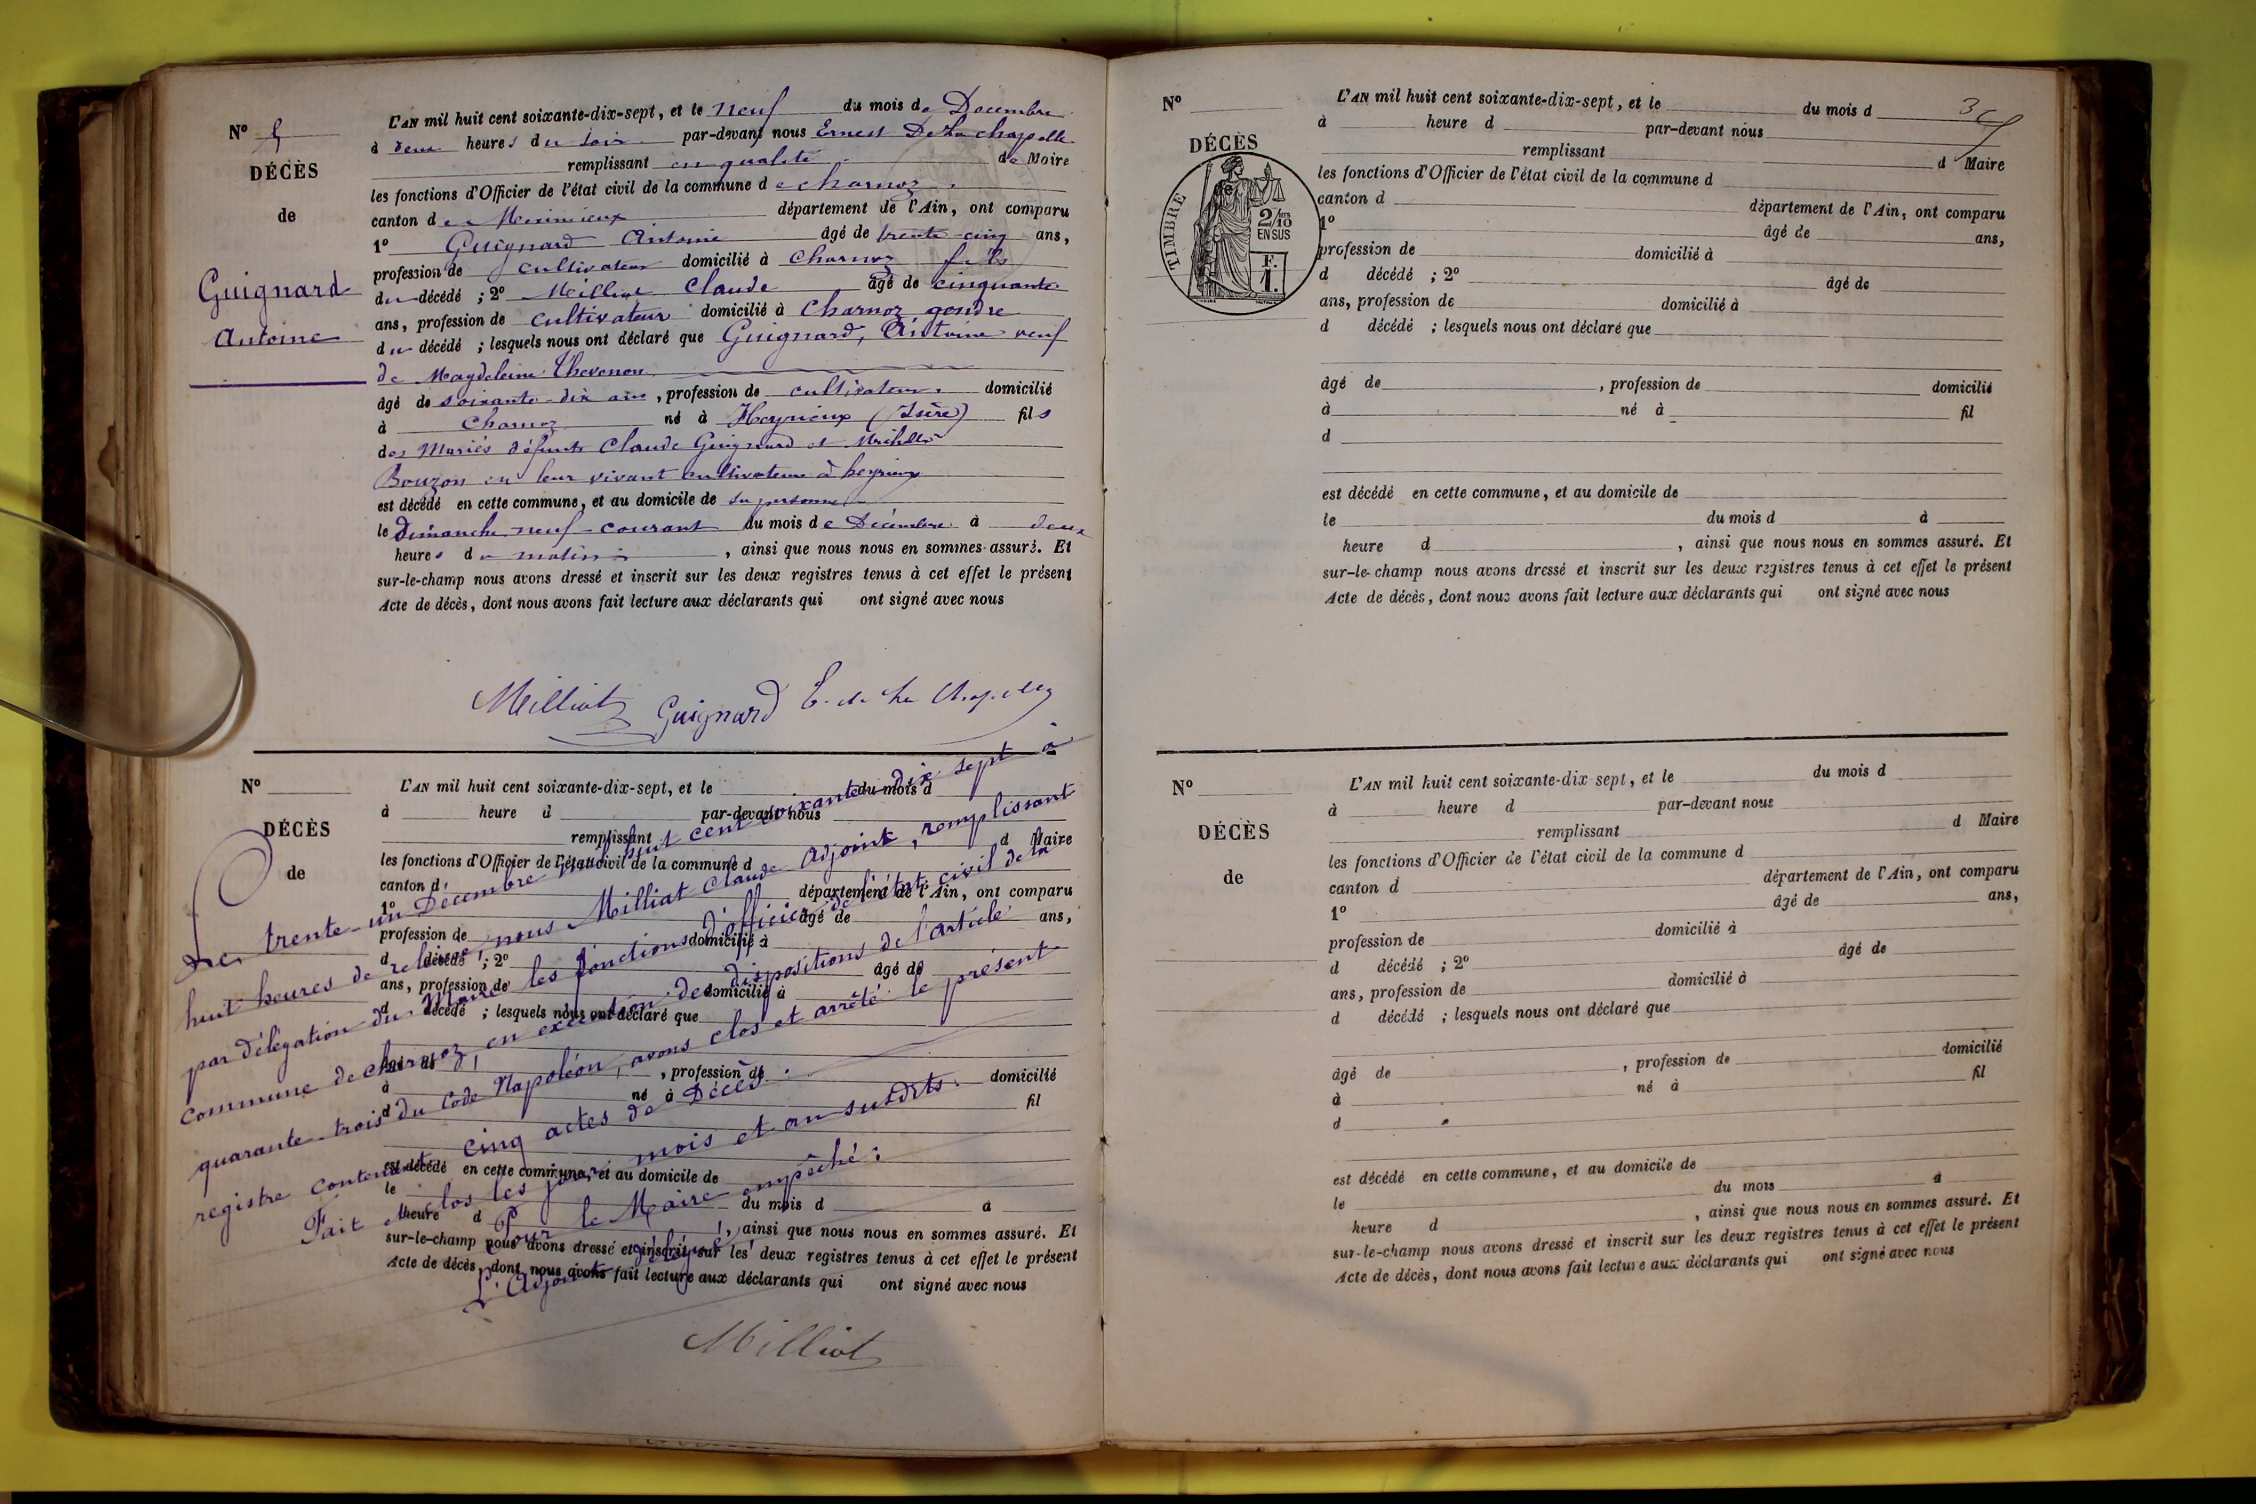 N° 5
DÉCÈS
de
Guignard
Antoine
L'AN mil huit cent soixante-dix-sept, et le neuf du mois de Decembre
à deux heures du soir par-devant nous Ernest De La chapelle
remplissant en qualité de Maire
les fonctions d'Officier de l'état civil de la commune de charnoz
canton de Meximieux département de l'Ain, ont comparu
1° Guignard Antoine âgé de trente-cinq ans,
profession de cultivateur domicilié à Charnoz fils
du décédé ; 2° Milliat Claude âgé de cinquante
ans, profession de cultivateur domicilié à Charnoz gendre
du décédé ; lesquels nous ont déclaré que Guignard, Antoine veuf
de Magdeleine Thevenon
âgé de soixante-dix ans, profession de cultivateur domicilié
à Charnoz né à Heyrieux (Isère) fils
des Mariés défunts Claude Guignard et
Bouzon en leur vivant cultivateurs à heyrieux
est décédé en cette commune, et au domicile de sa personne
le Dimanche neuf courant du mois de Décembre à deux
heures du matin, ainsi que nous nous en sommes assuré. Et
sur-le-champ nous avons dressé et inscrit sur les deux registres tenus à cet effet le présent
Acte de décès, dont nous avons fait lecture aux déclarants qui ont signé avec nous
Milliat Guignard E. de La Chapelle
N°
DÉCÈS
de
L'AN mil huit cent soixante-dix-sept, et le du mois d
à heure d par-devant nous
remplissant d Maire
les fonctions d'Officier de l'état civil de la commune d
canton d département de l'Ain, ont comparu
1° âgé de ans,
profession de domicilié à
d décédé ; 2° âgé de
ans, profession de domicilié à
d décédé ; lesquels nous ont déclaré que
âgé de , profession de domicilié
à né à fil
d
est décédé en cette commune, et au domicile de
le du mois d à
heure d , ainsi que nous nous en sommes assuré. Et
sur-le-champ nous avons dressé et inscrit sur les deux registres tenus à cet effet le présent
Acte de décès, dont nous avons fait lecture aux déclarants qui ont signé avec nous
Le trente-un Décembre mil huit cent soixante-dix sept à
huit heures de relevée, nous Milliat Claude Adjoint, remplissant
par délégation du Maire les fonctions d'officier de l'état civil de la
commune de charnoz, en exécution des dispositions de l'article
quarante-trois du Code Napoléon, avons clos et arrêté le présent
registre contenant cinq actes de Décès.
Fait et clos les jour, mois et an susdits.
Pour le Maire empêché :
L'Adjoint délégué,
Milliat
39
N°
DÉCÈS
TIMBRE
2/10 EN SUS
F. 1.
L'AN mil huit cent soixante-dix-sept, et le du mois d
à heure d par-devant nous
remplissant d Maire
les fonctions d'Officier de l'état civil de la commune d
canton d département de l'Ain, ont comparu
1° âgé de ans,
profession de domicilié à
d décédé ; 2° âgé de
ans, profession de domicilié à
d décédé ; lesquels nous ont déclaré que
âgé de , profession de domicilié
à né à fil
d
est décédé en cette commune, et au domicile de
le du mois d à
heure d , ainsi que nous nous en sommes assuré. Et
sur-le-champ nous avons dressé et inscrit sur les deux registres tenus à cet effet le présent
Acte de décès, dont nous avons fait lecture aux déclarants qui ont signé avec nous
N°
DÉCÈS
de
L'AN mil huit cent soixante-dix sept, et le du mois d
à heure d par-devant nous
remplissant d Maire
les fonctions d'Officier de l'état civil de la commune d
canton d département de l'Ain, ont comparu
1° âgé de ans,
profession de domicilié à
d décédé ; 2° âgé de
ans, profession de domicilié à
d décédé ; lesquels nous ont déclaré que
âgé de , profession de domicilié
à né à fil
d
est décédé en cette commune, et au domicile de
le du mois d
heure d , ainsi que nous nous en sommes assuré. Et
sur-le-champ nous avons dressé et inscrit sur les deux registres tenus à cet effet le présent
Acte de décès, dont nous avons fait lecture aux déclarants qui ont signé avec nous